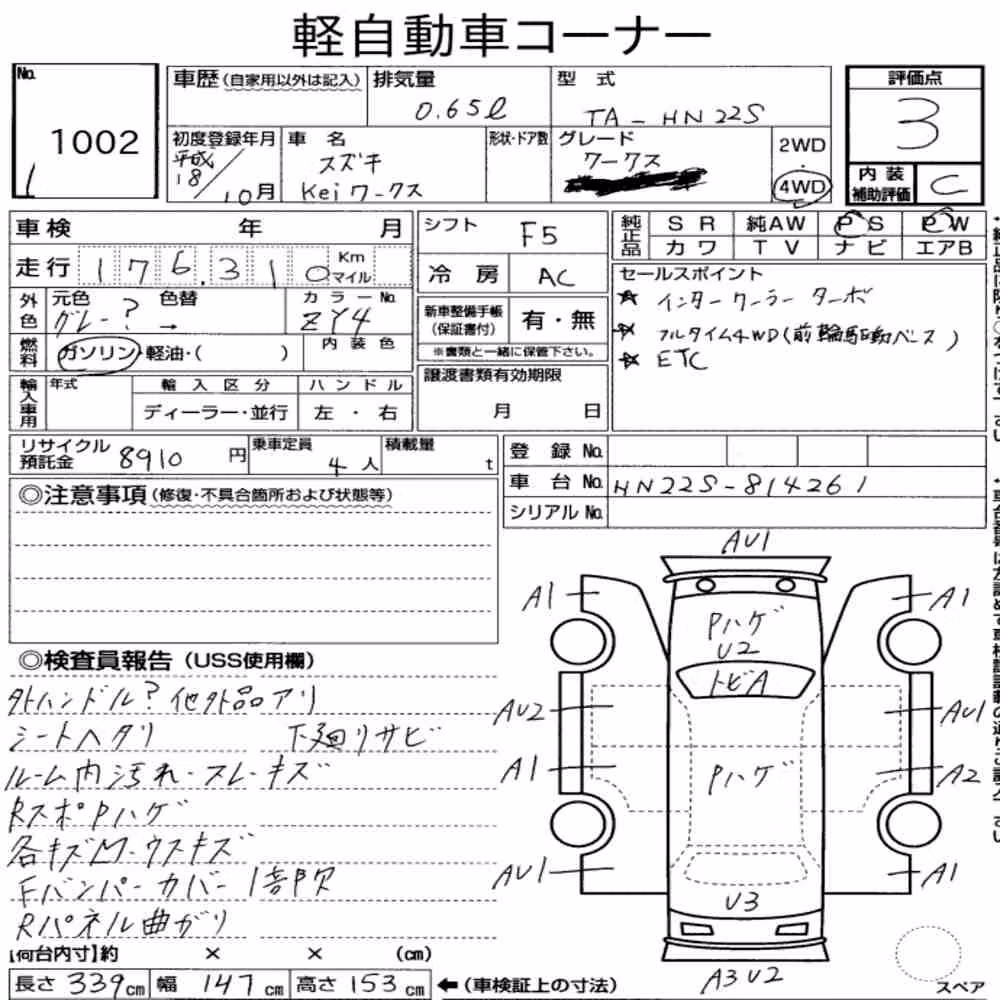 軽自動車コーナー
No.
1002
車歴 (自家用以外は記入)
排気量
0.65ℓ
型 式
TA-HN22S
評価点
3
初度登録年月
平成
18/10月
車 名
スズキ
Keiワークス
形状・ドア数
グレード
ワークス
2WD
・
4WD
内装
補助評価
C
車検 年 月
走行 176.310 Km
マイル
シフト
F5
冷 房
AC
純正品
SR 純AW PS PW
カワ TV ナビ エアB
外色
元色
グレー?
色替
→
カラーNo.
ZY4
燃料
ガソリン・軽油・( )
内装色
新車整備手帳
(保証書付)
有・無
※書類と一緒に保管下さい。
セールスポイント
☆ インタークーラー ターボ
☆ フルタイム4WD(前輪駆動ベース)
☆ ETC
輸入車用
年式
輸入区分
ディーラー・並行
ハンドル
左・右
譲渡書類有効期限
月 日
リサイクル
預託金
8910 円
乗車定員
4人
積載量
t
登 録 No.
車 台 No. HN22S-814261
シリアル No.
◎注意事項 (修復・不具合箇所および状態等)
◎検査員報告 (USS使用欄)
外ハンドル? 他外品アリ
シートヘタリ 下廻リサビ
ルーム内汚れ・スレ・キズ
RスポPハゲ
各キズM・ウスキズ
Fバンパーカバー1部欠
Rパネル曲がり
AU1
A1
A1
Pハゲ
U2
トビA
AU2
AU1
A1
Pハゲ
A2
AU1
U3
A1
A3 U2
スペア
【荷台内寸】約 × × (cm)
長さ 339cm 幅 147cm 高さ 153cm ←(車検証上の寸法)